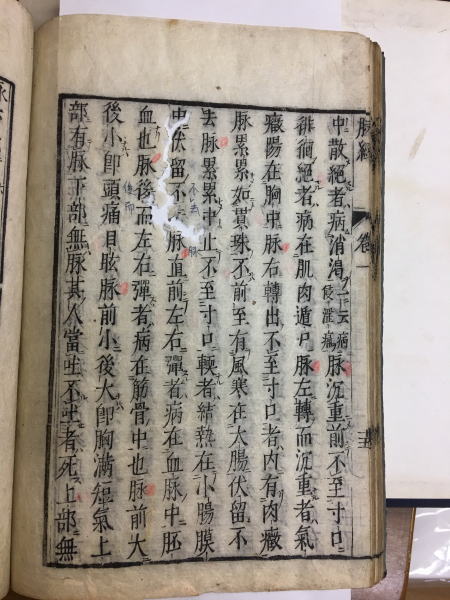 脉經 卷一 五
中散絕者病消渴一云病浸淫痛脉沉重前不至寸口
徘徊絕者病在肌肉遁尸脉左轉而沉重者氣
癥陽在胸中脉右轉出不至寸口者內有肉癥
脉累累如貫珠不前至有風寒在大腸伏留不
去脉累累中止不至寸口軟者結熱在小腸膜
中伏留不去脉直前左右彈者病在血脉中胚
血也脉後而左右彈者病在筋骨中也脉前大
後小即頭痛目眩脉前小後大即胸滿短氣上
部有脉下部無脉其人當吐不吐者死上部無